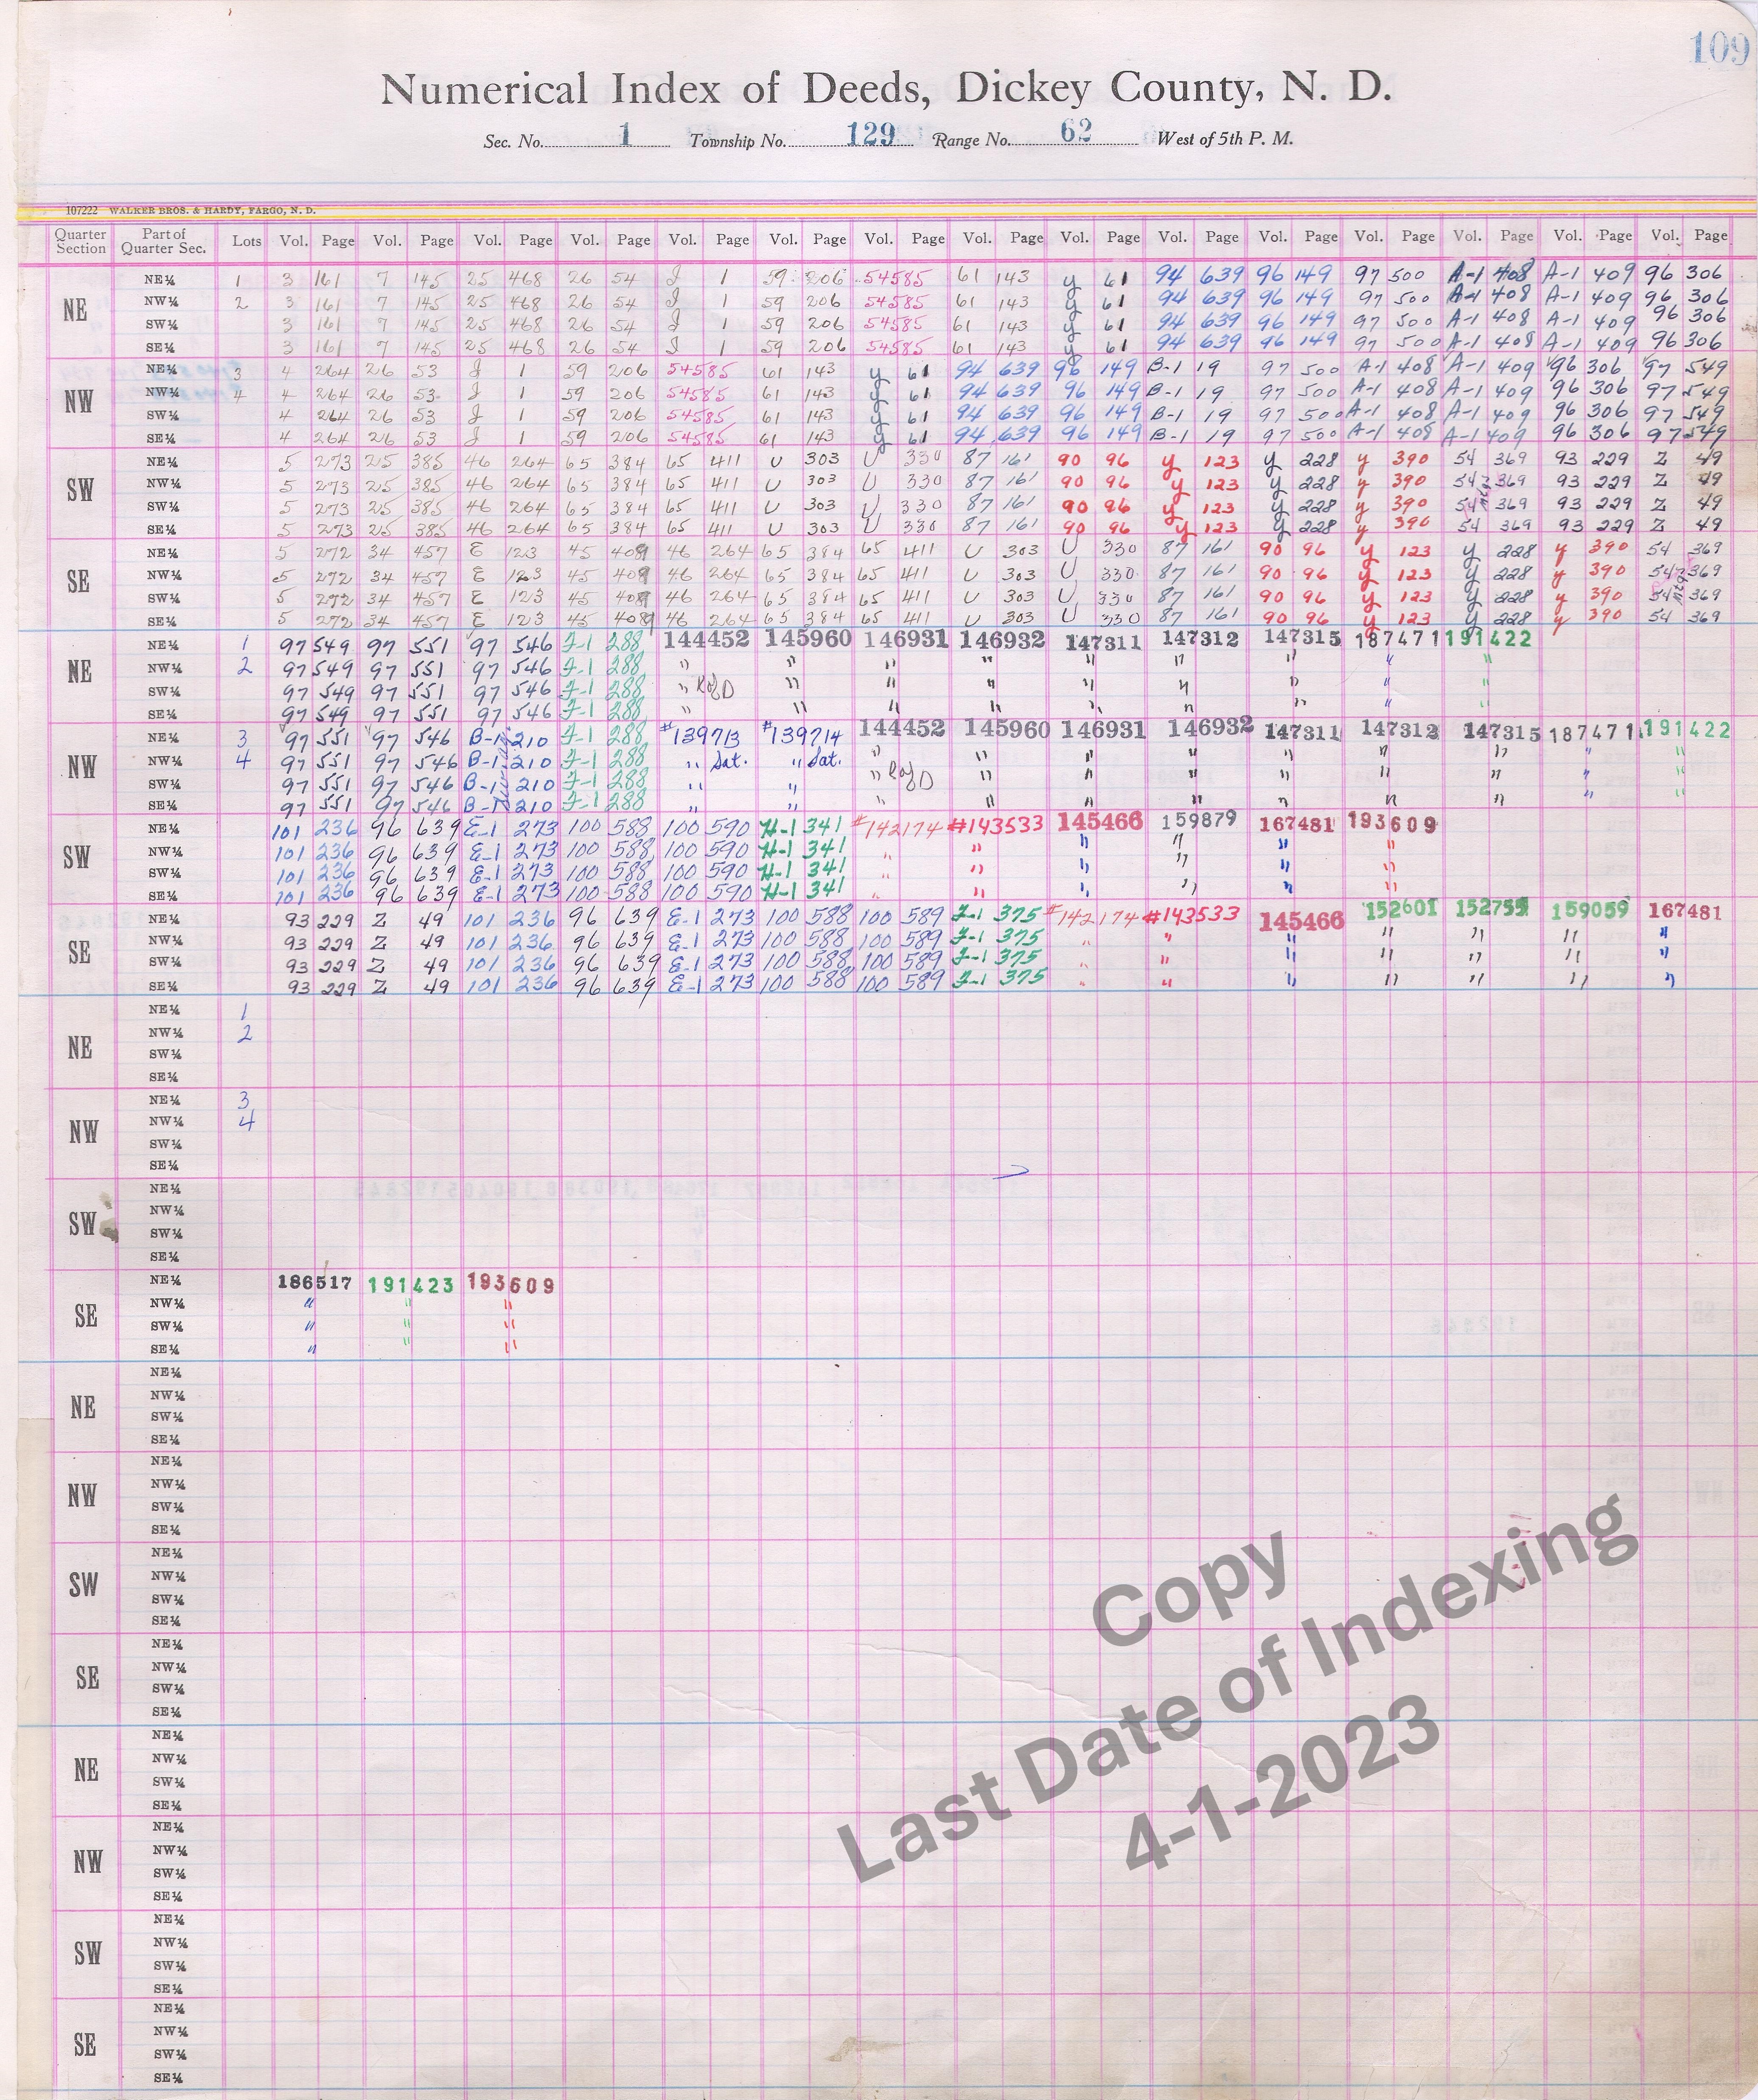 109
Numerical Index of Deeds, Dickey County, N. D.
Sec. No. 1 Township No. 129 Range No. 62 West of 5th P. M.
107222 WALKER BROS. & HARDY, FARGO, N. D.
Quarter Section Part of Quarter Sec. Lots Vol. Page Vol. Page Vol. Page Vol. Page Vol. Page Vol. Page Vol. Page Vol. Page Vol. Page Vol. Page Vol. Page Vol. Page Vol. Page Vol. Page Vol. Page
NE
NE¼ 1 3 161 7 145 25 468 26 54 J 1 59 206 54585 61 143 y 61 94 639 96 149 97 500 A-1 408 A-1 409 96 306
NW¼ 2 3 161 7 145 25 468 26 54 J 1 59 206 54585 61 143 y 61 94 639 96 149 97 500 A-1 408 A-1 409 96 306
SW¼ 3 161 7 145 25 468 26 54 J 1 59 206 54585 61 143 y 61 94 639 96 149 97 500 A-1 408 A-1 409 96 306
SE¼ 3 161 7 145 25 468 26 54 J 1 59 206 54585 61 143 y 61 94 639 96 149 97 500 A-1 408 A-1 409 96 306
NW
NE¼ 3 4 264 26 53 J 1 59 206 54585 61 143 y 61 94 639 96 149 B-1 19 97 500 A-1 408 A-1 409 96 306 97 549
NW¼ 4 4 264 26 53 J 1 59 206 54585 61 143 y 61 94 639 96 149 B-1 19 97 500 A-1 408 A-1 409 96 306 97 549
SW¼ 4 264 26 53 J 1 59 206 54585 61 143 y 61 94 639 96 149 B-1 19 97 500 A-1 408 A-1 409 96 306 97 549
SE¼ 4 264 26 53 J 1 59 206 54585 61 143 y 61 94 639 96 149 B-1 19 97 500 A-1 408 A-1 409 96 306 97 549
SW
NE¼ 5 273 25 385 46 264 65 384 65 411 U 303 U 330 87 161 90 96 y 123 y 228 y 390 54 369 93 229 Z 49
NW¼ 5 273 25 385 46 264 65 384 65 411 U 303 U 330 87 161 90 96 y 123 y 228 y 390 54 369 93 229 Z 49
SW¼ 5 273 25 385 46 264 65 384 65 411 U 303 U 330 87 161 90 96 y 123 y 228 y 390 54 369 93 229 Z 49
SE¼ 5 273 25 385 46 264 65 384 65 411 U 303 U 330 87 161 90 96 y 123 y 228 y 390 54 369 93 229 Z 49
SE
NE¼ 5 272 34 457 E 123 45 409 46 264 65 384 65 411 U 303 U 330 87 161 90 96 y 123 y 228 y 390 54 369
NW¼ 5 272 34 457 E 123 45 409 46 264 65 384 65 411 U 303 U 330 87 161 90 96 y 123 y 228 y 390 54 369
SW¼ 5 272 34 457 E 123 45 409 46 264 65 384 65 411 U 303 U 330 87 161 90 96 y 123 y 228 y 390 54 369
SE¼ 5 272 34 457 E 123 45 409 46 264 65 384 65 411 U 303 U 330 87 161 90 96 y 123 y 228 y 390 54 369
NE
NE¼ 1 97 549 97 551 97 546 J-1 288 144452 145960 146931 146932 147311 147312 147315 187471 191422
NW¼ 2 97 549 97 551 97 546 J-1 288 " " " " " " " " "
SW¼ 97 549 97 551 97 546 J-1 288 " R of D " " " " " " " "
SE¼ 97 549 97 551 97 546 J-1 288 " " " " " " " " "
NW
NE¼ 3 97 551 97 546 B-1 210 J-1 288 #139713 #139714 144452 145960 146931 146932 147311 147312 147315 187471 191422
NW¼ 4 97 551 97 546 B-1 210 J-1 288 " Sat. " Sat. " " " " " " " " "
SW¼ 97 551 97 546 B-1 210 J-1 288 " " " R of D " " " " " " " "
SE¼ 97 551 97 546 B-1 210 J-1 288 " " " " " " " " " " "
SW
NE¼ 101 236 96 639 E-1 273 100 588 100 590 H-1 341 #142174 #143533 145466 159879 167481 193609
NW¼ 101 236 96 639 E-1 273 100 588 100 590 H-1 341 " " " " " "
SW¼ 101 236 96 639 E-1 273 100 588 100 590 H-1 341 " " " " " "
SE¼ 101 236 96 639 E-1 273 100 588 100 590 H-1 341 " " " " " "
SE
NE¼ 93 229 Z 49 101 236 96 639 E-1 273 100 588 100 589 J-1 375 #142174 #143533 145466 152601 152755 159059 167481
NW¼ 93 229 Z 49 101 236 96 639 E-1 273 100 588 100 589 J-1 375 " " " " " " "
SW¼ 93 229 Z 49 101 236 96 639 E-1 273 100 588 100 589 J-1 375 " " " " " " "
SE¼ 93 229 Z 49 101 236 96 639 E-1 273 100 588 100 589 J-1 375 " " " " " " "
NE
NE¼ 1
NW¼ 2
SW¼
SE¼
NW
NE¼ 3
NW¼ 4
SW¼
SE¼
SW
NE¼
NW¼
SW¼
SE¼
SE
NE¼ 186517 191423 193609
NW¼ " " "
SW¼ " " "
SE¼ " " "
NE
NE¼
NW¼
SW¼
SE¼
NW
NE¼
NW¼
SW¼
SE¼
SW
NE¼
NW¼
SW¼
SE¼
SE
NE¼
NW¼
SW¼
SE¼
NE
NE¼
NW¼
SW¼
SE¼
NW
NE¼
NW¼
SW¼
SE¼
SW
NE¼
NW¼
SW¼
SE¼
SE
NE¼
NW¼
SW¼
SE¼
Copy
Last Date of Indexing
4-1-2023